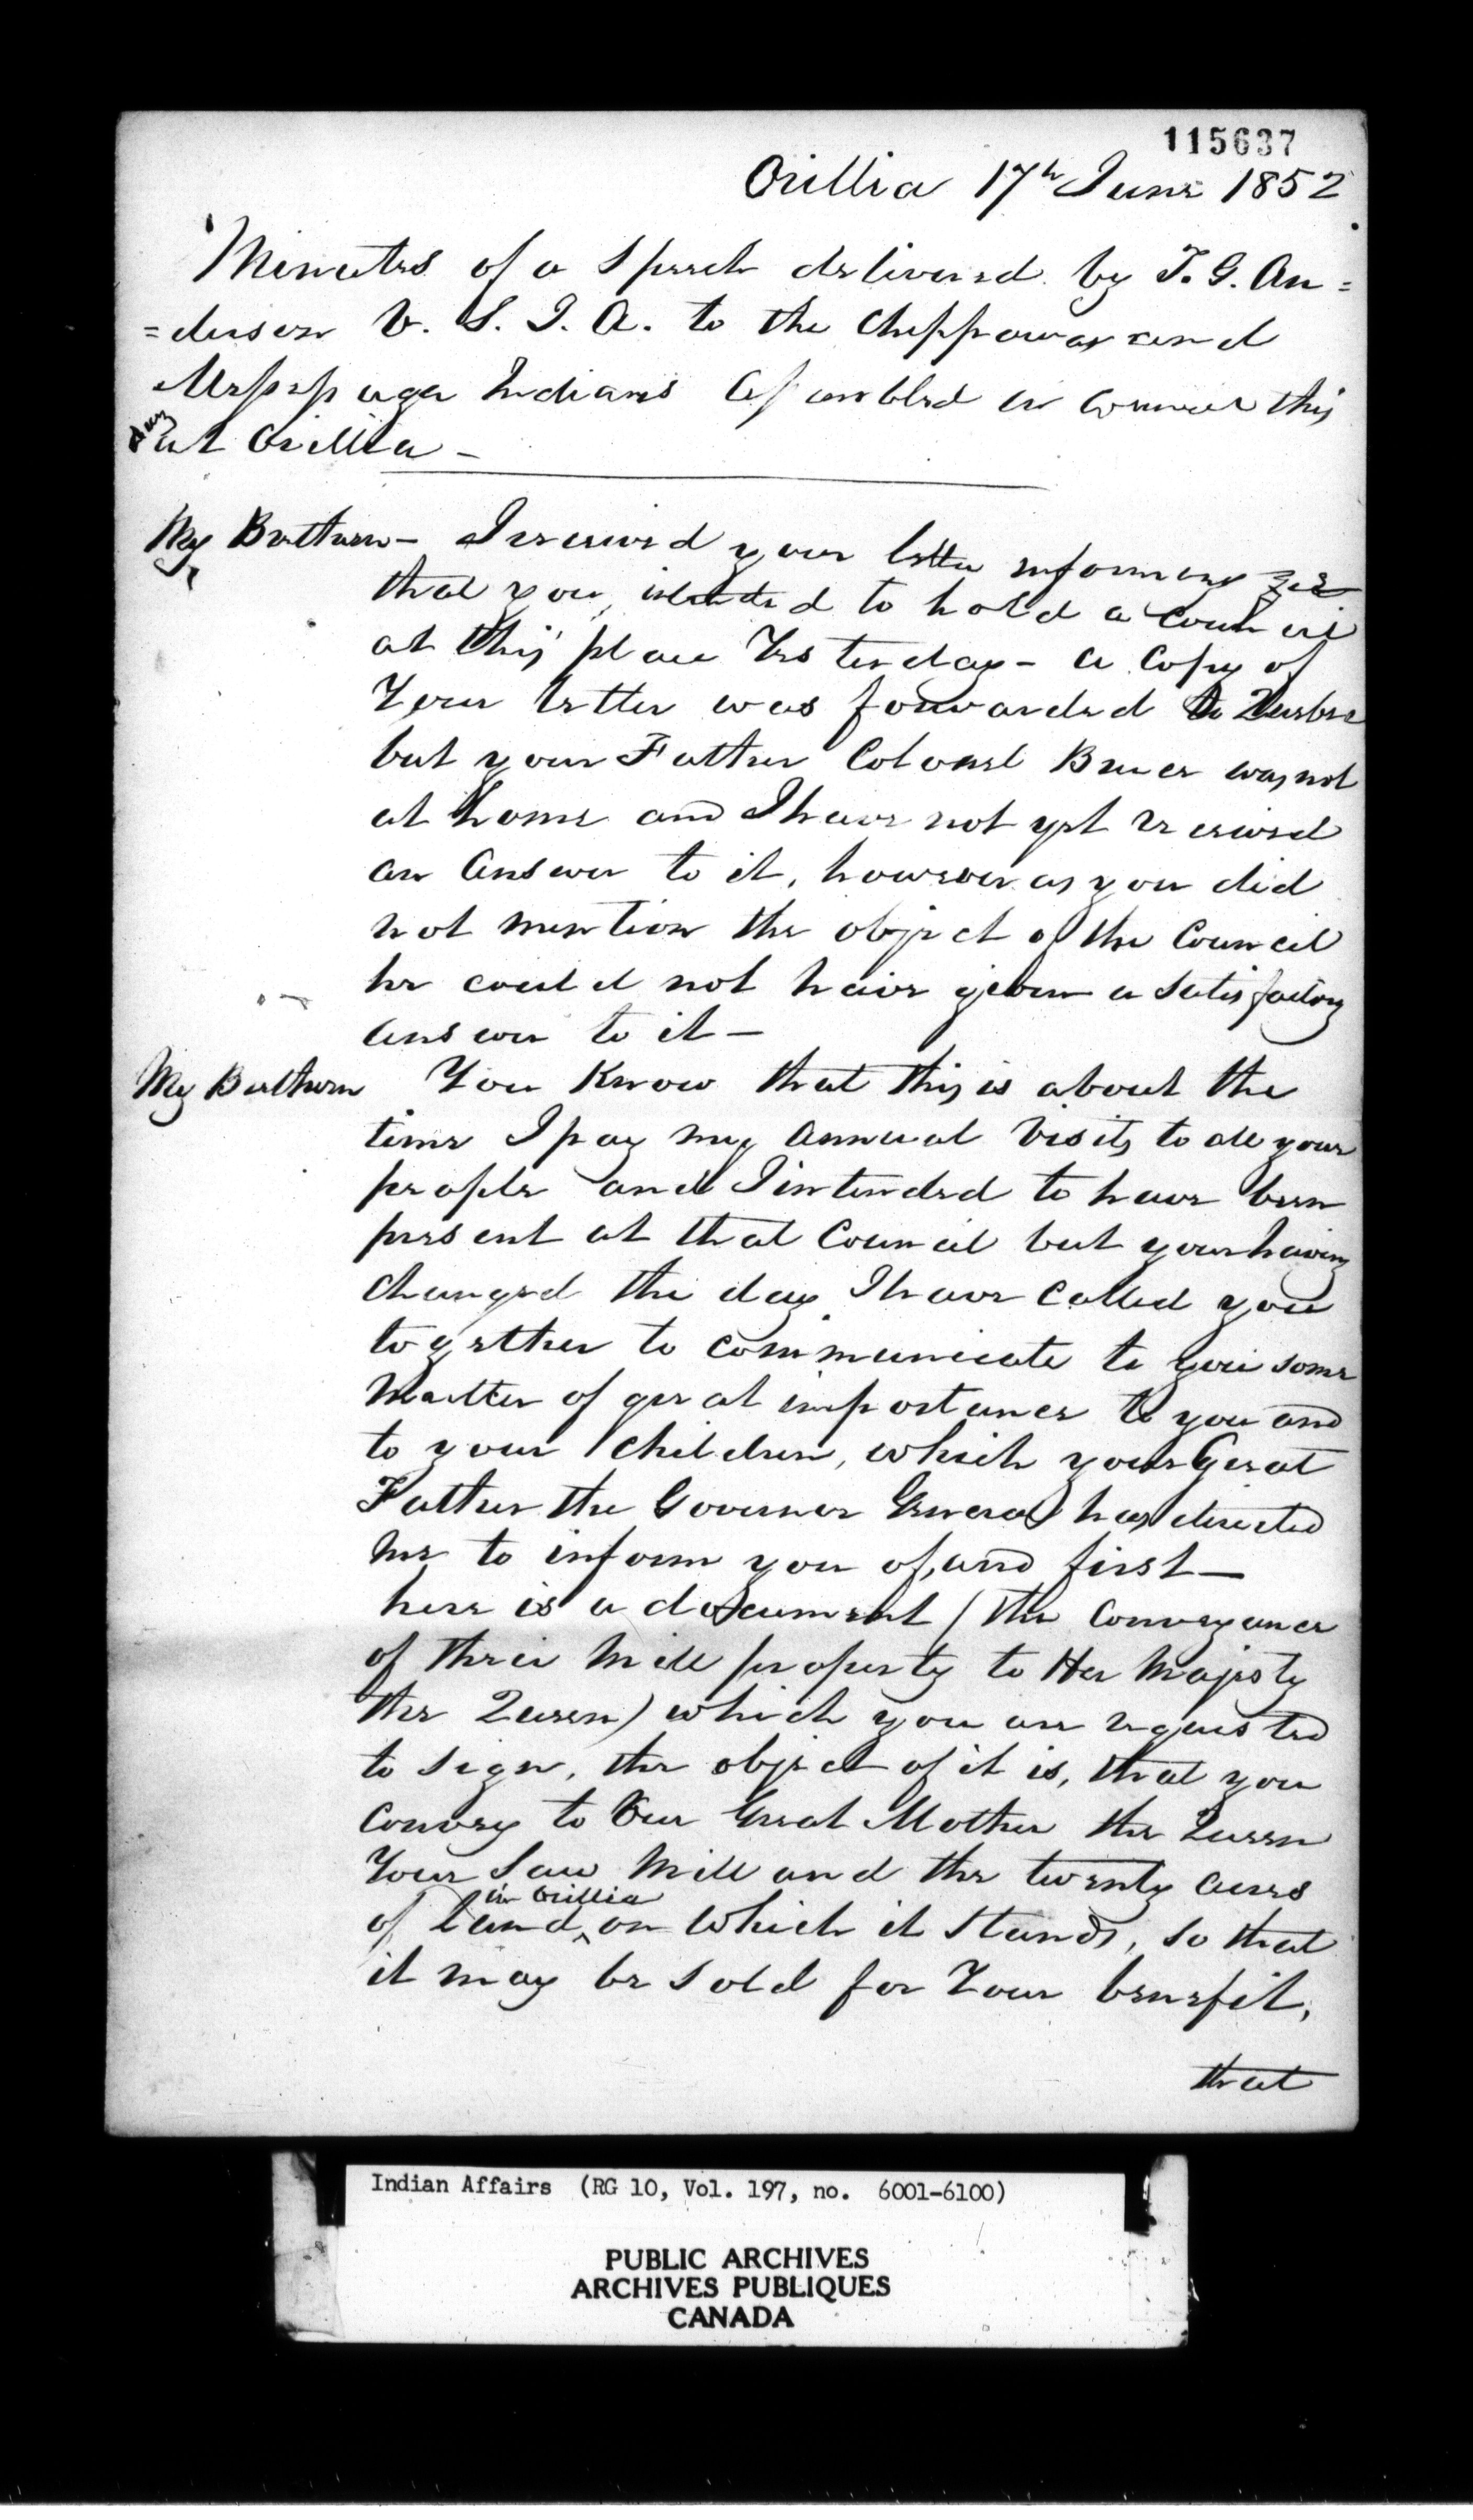 115637
Orillia 17th June 1852
Minutes of a Speech delivered by T. G. An=
=derson V. S. I. A. to the Chippawa and
Messessaga Indians assembled in Council this
day
at Orillia –
My Brethren – I received your letter informing me
that you intended to hold a Council
at this place Yesterday – a Copy of
Your letter was forwarded to Quebec
but your Father Colonel Bruce was not
at home and I have not yet received
an Answer to it, however as you did
not mention the object of the Council
he could not have given a satisfactory
answer to it –
My Brethren You Know that this is about the
time I pay my annual visits to all your
people and I intended to have been
present at that Council but your having
changed the day I have Called you
together to communicate to you some
matter of great importance to you and
to your children, which your Great
Father the Governor General has directed
me to inform you of, and first –
here is a document (the Conveyance
of their Mill property to Her Majesty
the Queen) which you are requested
to sign, the object of it is, that you
Convey to Our Great Mother the Queen
Your Saw Mill and the twenty acres
in Orillia
of Land, on which it stands, so that
it may be sold for Your benefit,
that
Indian Affairs (RG 10, Vol. 197, no. 6001-6100)
PUBLIC ARCHIVES
ARCHIVES PUBLIQUES
CANADA